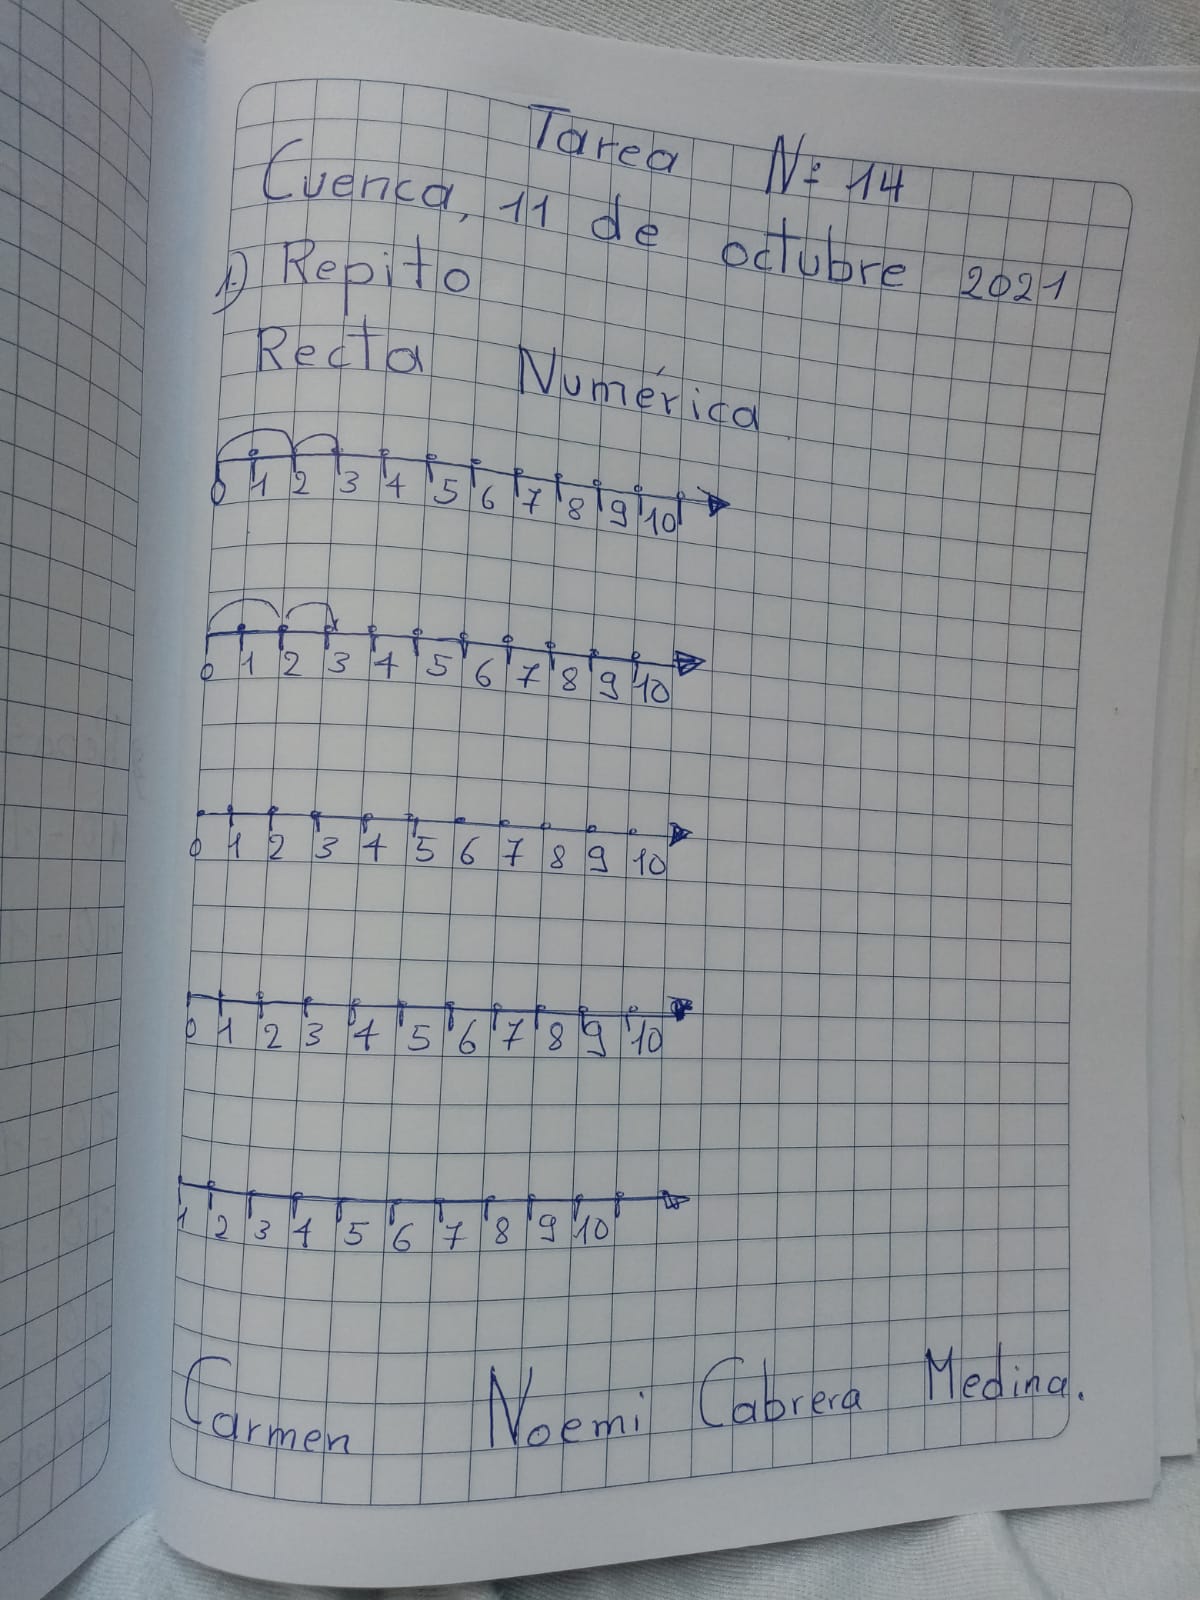 Tarea Nº 14
Cuenca, 11 de octubre 2021
1) Repito
Recta Numérica
0 1 2 3 4 5 6 7 8 9 10
0 1 2 3 4 5 6 7 8 9 10
0 1 2 3 4 5 6 7 8 9 10
0 1 2 3 4 5 6 7 8 9 10
1 2 3 4 5 6 7 8 9 10
Carmen Noemi Cabrera Medina.